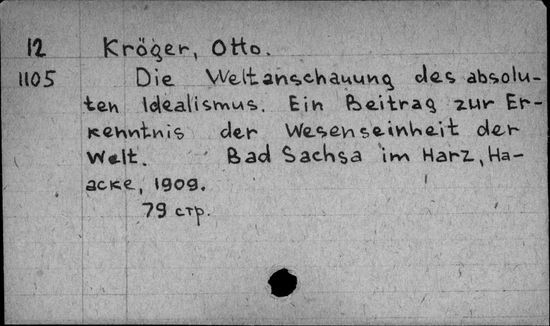 12 Kröger, Otto.
1105 Die Weltanschauung des absolu-
ten Idealismus. Ein Beitrag zur Er-
kenntnis der Wesenseinheit der
Welt. Bad Sachsa im Harz, Ha-
acke, 1909.
79 стр.